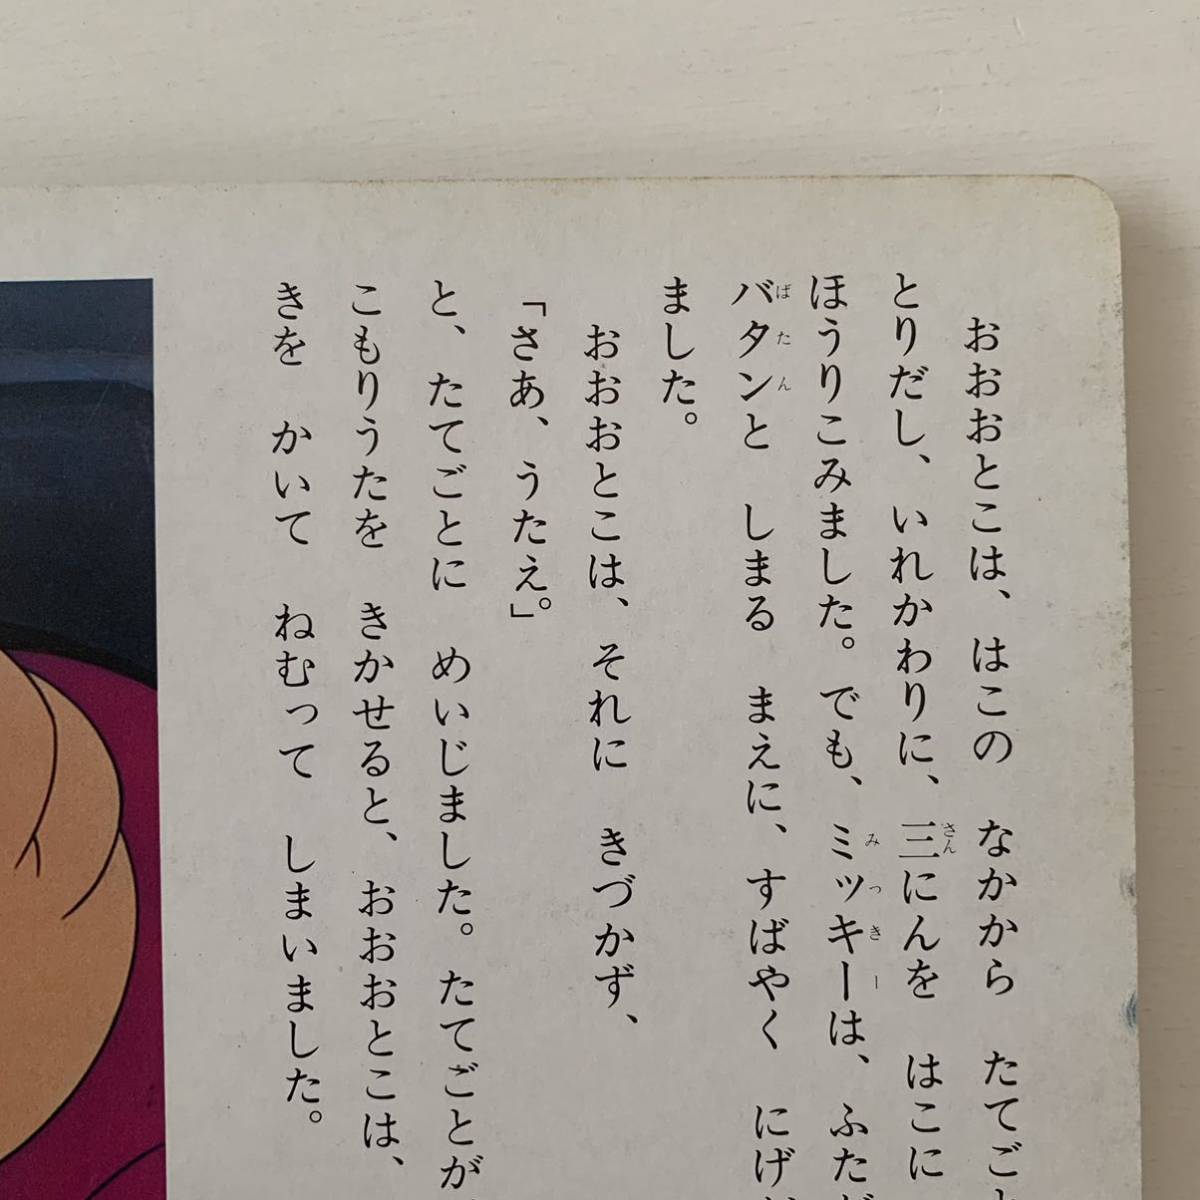 おおおとこは、はこの なかから たてご
とりだし、いれかわりに、三にんを はこに
ほうりこみました。でも、ミッキーは、ふた
バタンと しまる まえに、すばやく にげ
ました。
おおおとこは、それに きづかず、
「さあ、うたえ。」
と、たてごとに めいじました。たてごとが、
こもりうたを きかせると、おおおとこは、
きを かいて ねむって しまいました。